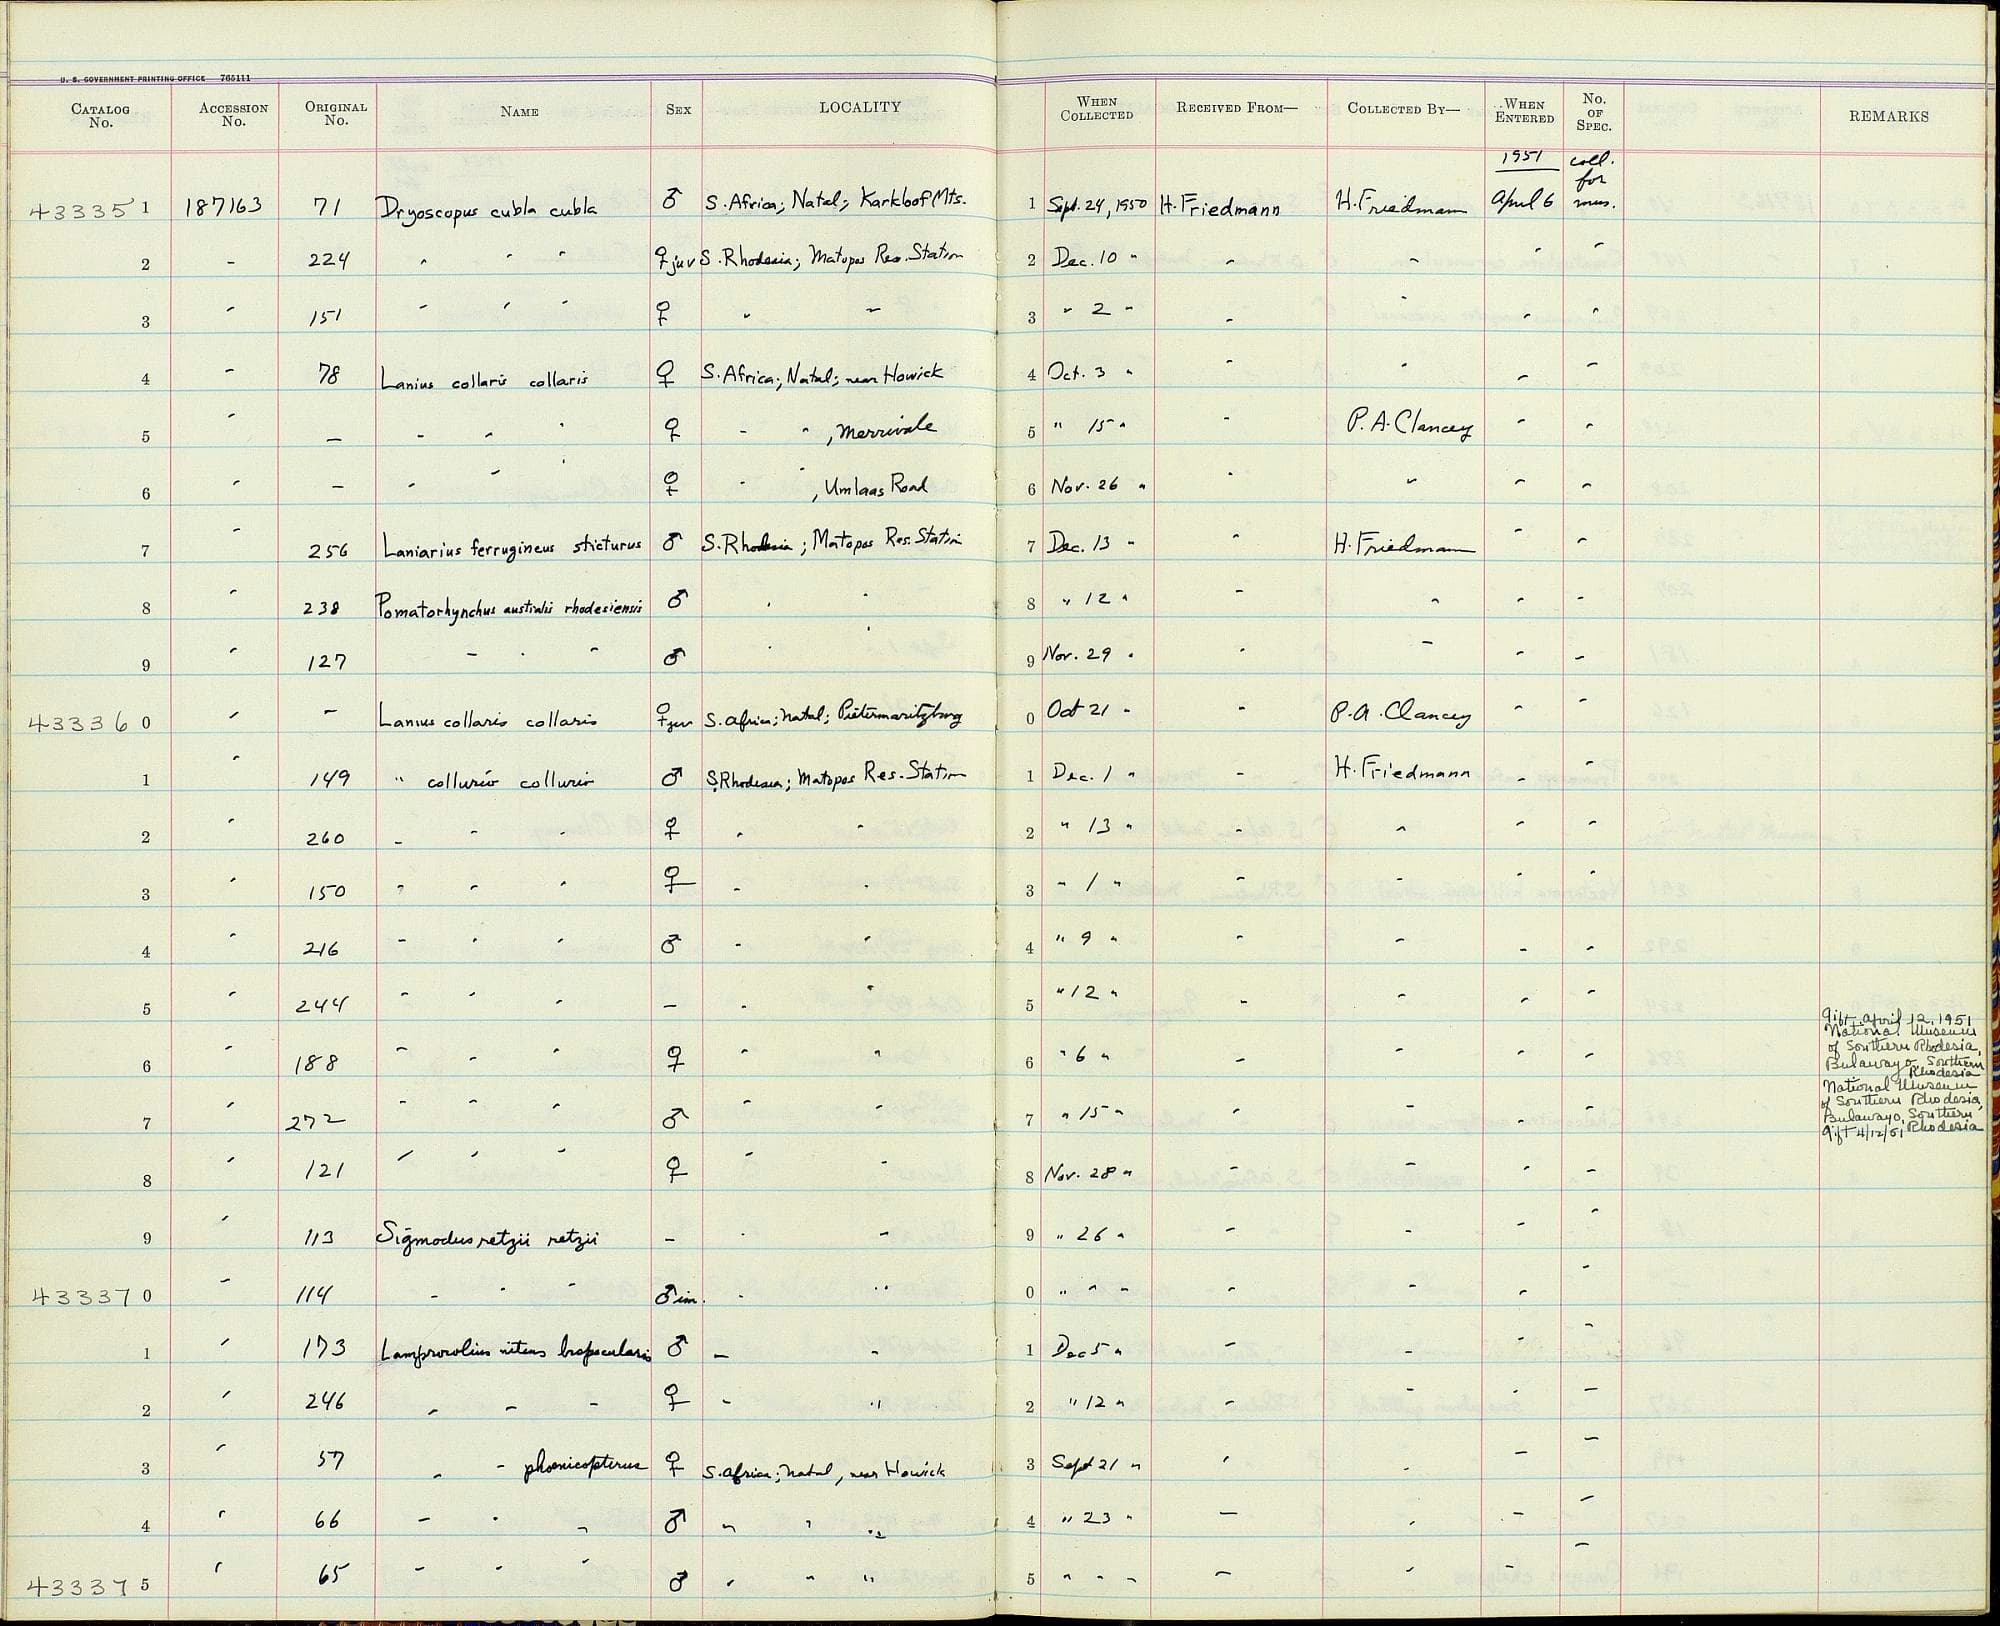 U. S. GOVERNMENT PRINTING OFFICE 765111
CATALOG No. ACCESSION No. ORIGINAL No. NAME SEX LOCALITY WHEN COLLECTED RECEIVED FROM— COLLECTED BY— WHEN ENTERED No. OF SPEC. REMARKS
1951 coll. for mus.
43335 1 187163 71 Dryoscopus cubla cubla ♂ S. Africa; Natal; Karkloof Mts. 1 Sept. 24, 1950 H. Friedmann H. Friedmann April 6
2 " 224 " " " ♀ juv S. Rhodesia; Matopos Res. Station 2 Dec. 10 " " " " "
3 " 151 " " " ♀ " " 3 " 2 " " " " "
4 " 78 Lanius collaris collaris ♀ S. Africa; Natal; near Howick 4 Oct. 3 " " " " "
5 " — " " " ♀ " " , Merrivale 5 " 15 " " P. A. Clancey " "
6 " — " " " ♀ " " , Umlaas Road 6 Nov. 26 " " " " "
7 " 256 Laniarius ferrugineus sticturus ♂ S. Rhodesia; Matopos Res. Station 7 Dec. 13 " " H. Friedmann " "
8 " 238 Pomatorhynchus australis rhodesiensis ♂ " " 8 " 12 " " " " "
9 " 127 " " " ♂ " " 9 Nov. 29 " " " " "
43336 0 " — Lanius collaris collaris ♀ juv S. Africa; Natal; Pietermaritzburg 0 Oct 21 " " P. A. Clancey " "
1 " 149 " collurio collurio ♂ S. Rhodesia; Matopos Res. Station 1 Dec. 1 " " H. Friedmann " "
2 " 260 " " " ♀ " " 2 " 13 " " " " "
3 " 150 " " " ♀ " " 3 " 1 " " " " "
4 " 216 " " " ♂ " " 4 " 9 " " " " "
5 " 244 " " " — " " 5 " 12 " " " " "
6 " 188 " " " ♀ " " 6 " 6 " " " " " Gift April 12, 1951 National Museum of Southern Rhodesia, Bulawayo, Southern Rhodesia
7 " 272 " " " ♂ " " 7 " 15 " " " " " National Museum of Southern Rhodesia, Bulawayo, Southern Rhodesia Gift 4/12/51
8 " 121 " " " ♀ " " 8 Nov. 28 " " " " "
9 " 113 Sigmodus retzii retzii — " " 9 " 26 " " " " "
43337 0 " 114 " " " ♂ im. " " 0 " " " " " " "
1 " 173 Lamprocolius nitens ♂ " " 1 Dec 5 " " " " "
2 " 246 " " " ♀ " " 2 " 12 " " " " "
3 " 57 " " phoenicopterus ♀ S. Africa; Natal, near Howick 3 Sept 21 " " " " "
4 " 66 " " " ♂ " " " 4 " 23 " " " " "
43337 5 " 65 " " " ♂ " " " 5 " " " " " " "